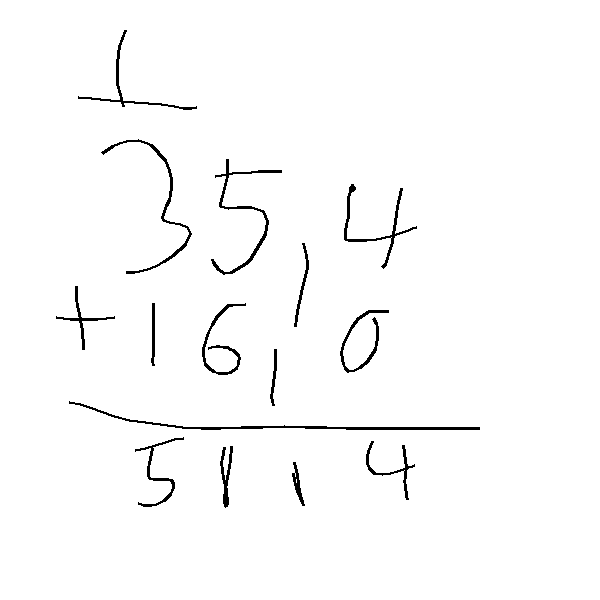 1
35,4
+ 16,0
51,4